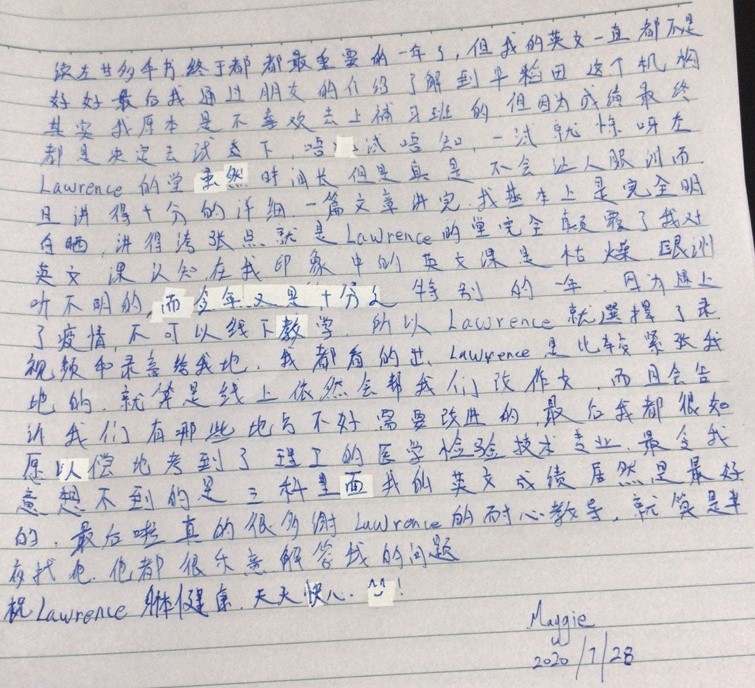 读左廿多年书终于都都最重要的一年了,但我的英文一直都不是
好好最后我通过朋友的介绍了解到早稻田这个机构
其实我原本是不喜欢去上补习班的.但因为成绩最终
都是决定去试去下,唔试唔知,一试就惊呀左
Lawrence的学虽然时间长但是真是不会让人眼训而
且讲得十分的详细.一篇文章讲完.我基本上是完全明
白晒,讲得夸张点就是Lawrence的堂完全颠覆了我对
英文课认知在我印象中的英文课是枯燥.眼训
听不明的,而今年又是十分之特别的一年.因为遇上
了疫情,不可以线下教学.所以Lawrence就選擇了录
视频和录音给我地.我都看的出Lawrence是比较紧张我
地的.就算是线上依然会帮我们改作文.而且会告
诉我们有哪些地方不好需要改进的.最后我都很如
愿以偿地考到了理工的医学检验技术专业.最令我
意想不到的是三科里面我的英文成绩居然是最好
的.最后啦真的很多谢Lawrence的耐心教导,就算是半
夜找他.他都很乐意解答我的问题
祝Lawrence身体健康.天天快心.^^!
Maggie
2020/7/28